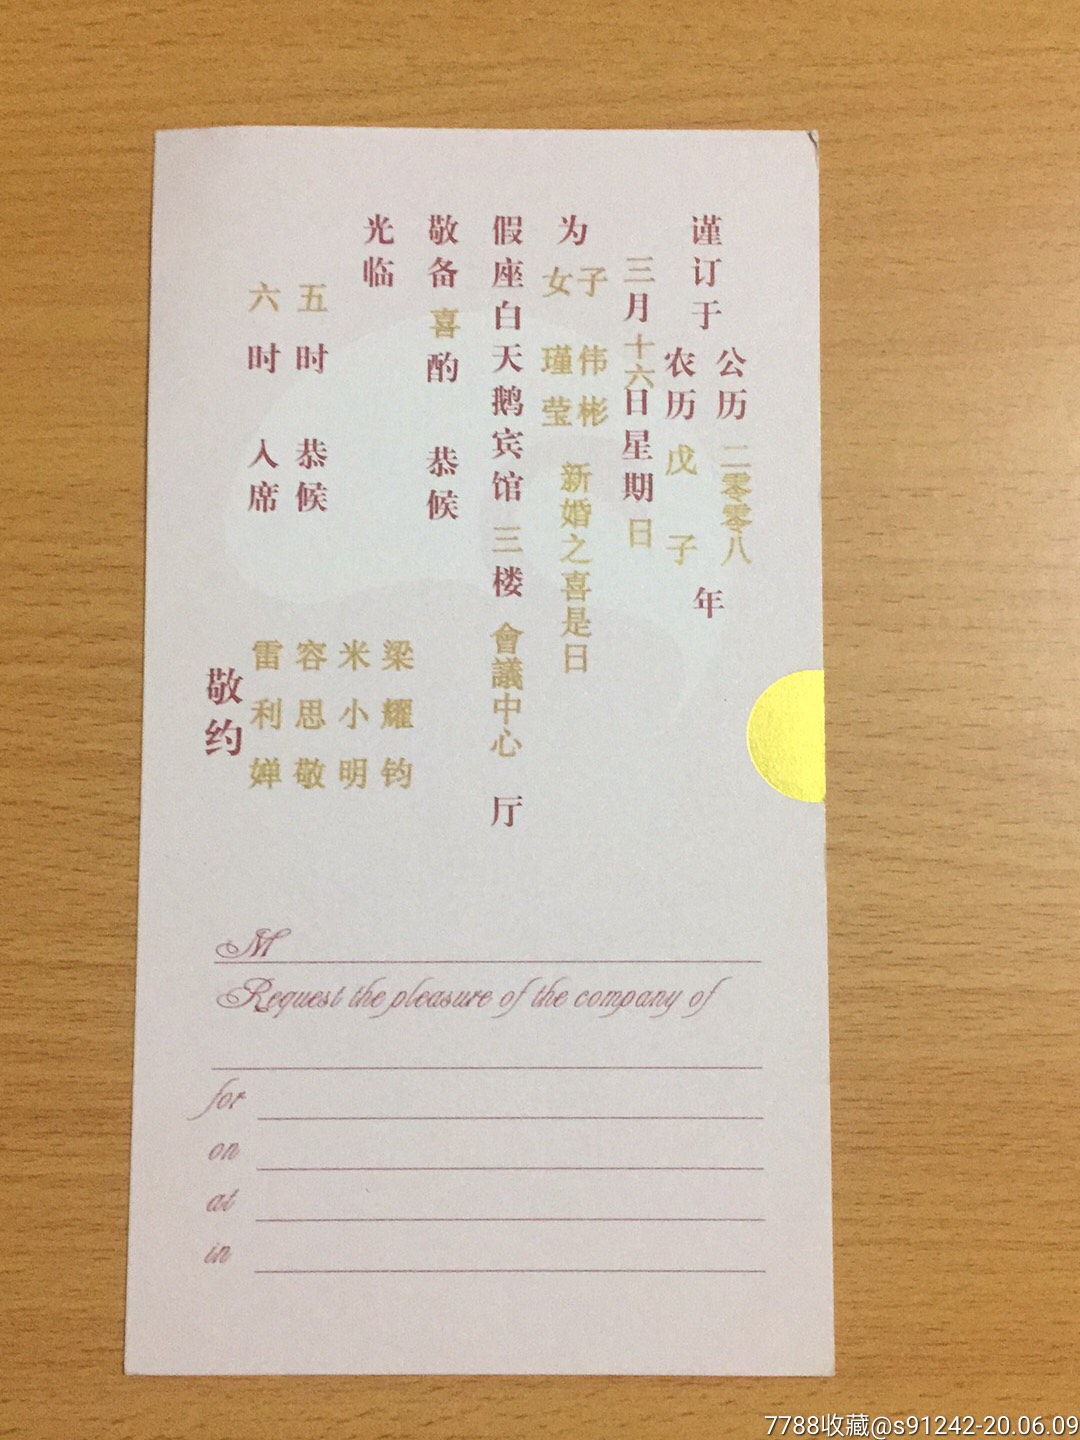 谨订于
公历 二零零八
农历 戊子
年
三月十六日星期日
为
子 伟彬
女 瑾莹
新婚之喜是日
假座白天鹅宾馆三楼會議中心厅
敬备喜酌 恭候
光临
五时 恭候
六时 入席
梁耀钧
米小明
容思敬
雷利婵
敬约
M
Request the pleasure of the company of
for
on
at
in
7788收藏@s91242-20.06.09